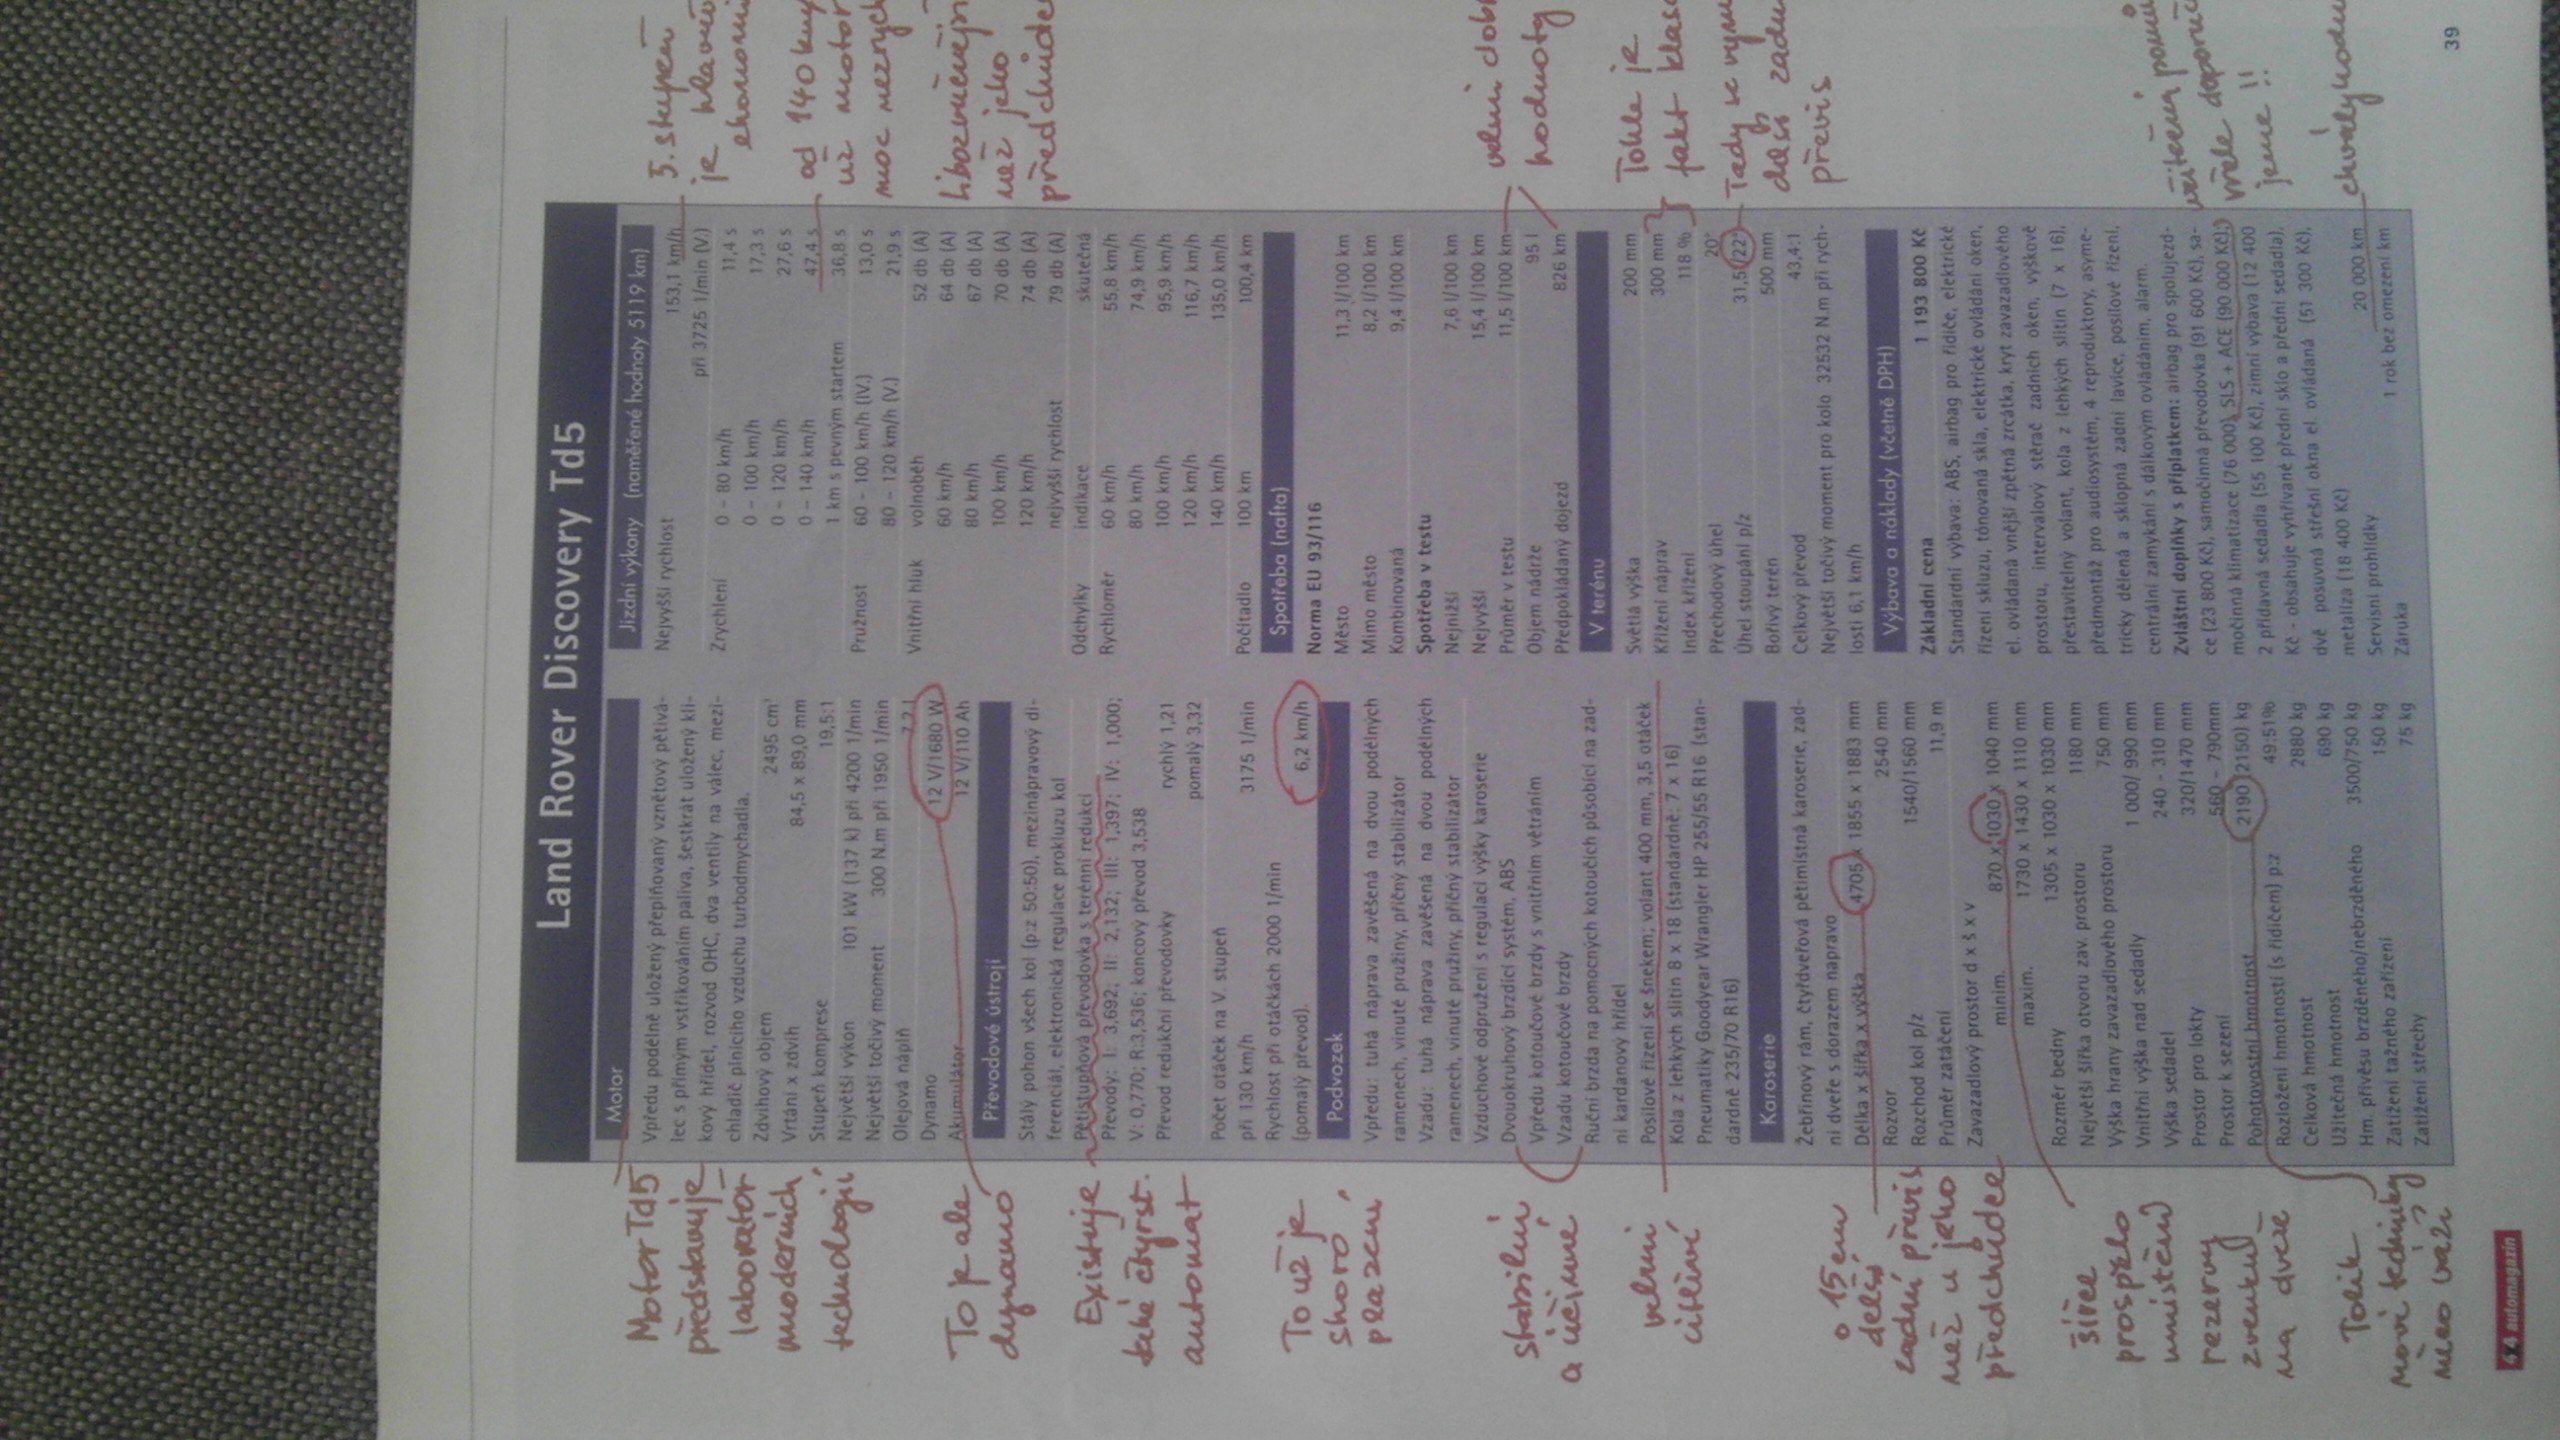 Land Rover Discovery Td5
Motor
Vpředu podélně uložený přeplňovaný vznětový pětivá-
lec s přímým vstřikováním paliva, šestkrát uložený kli-
kový hřídel, rozvod OHC, dva ventily na válec, mezi-
chladič plnicího vzduchu turbodmychadla.
Zdvihový objem 2495 cm³
Vrtání x zdvih 84,5 x 89,0 mm
Stupeň komprese 19,5:1
Největší výkon 101 kW (137 k) při 4200 1/min
Největší točivý moment 300 N.m při 1950 1/min
Olejová náplň 7,2 l
Dynamo 12 V/1680 W
Akumulátor 12 V/110 Ah
Převodové ústrojí
Stálý pohon všech kol (p:z 50:50), mezinápravový di-
ferenciál, elektronická regulace prokluzu kol
Pětistupňová převodovka s terénní redukcí
Převody: I: 3,692; II: 2,132; III: 1,397; IV: 1,000;
V: 0,770; R:3,536; koncový převod 3,538
Převod redukční převodovky rychlý 1,21
pomalý 3,32
Počet otáček na V. stupeň
při 130 km/h 3175 1/min
Rychlost při otáčkách 2000 1/min
(pomalý převod). 6,2 km/h
Podvozek
Vpředu: tuhá náprava zavěšená na dvou podélných
ramenech, vinuté pružiny, příčný stabilizátor
Vzadu: tuhá náprava zavěšená na dvou podélných
ramenech, vinuté pružiny, příčný stabilizátor
Vzduchové odpružení s regulací výšky karoserie
Dvouokruhový brzdicí systém, ABS
Vpředu kotoučové brzdy s vnitřním větráním
Vzadu kotoučové brzdy
Ruční brzda na pomocných kotoučích působící na zad-
ní kardanový hřídel
Posilové řízení se šnekem; volant 400 mm, 3,5 otáček
Kola z lehkých slitin 8 x 18 (standardně: 7 x 16)
Pneumatiky Goodyear Wrangler HP 255/55 R16 (stan-
dardně 235/70 R16)
Karoserie
Žebřinový rám, čtyřdveřová pětimístná karoserie, zad-
ní dveře s dorazem napravo
Délka x šířka x výška 4705 x 1855 x 1883 mm
Rozvor 2540 mm
Rozchod kol p/z 1540/1560 mm
Průměr zatáčení 11,9 m
Zavazadlový prostor d x š x v
minim. 870 x 1030 x 1040 mm
maxim. 1730 x 1430 x 1110 mm
Rozměr bedny 1305 x 1030 x 1030 mm
Největší šířka otvoru zav. prostoru 1180 mm
Výška hrany zavazadlového prostoru 750 mm
Vnitřní výška nad sedadly 1 000/ 990 mm
Výška sedadel 240 - 310 mm
Prostor pro lokty 320/1470 mm
Prostor k sezení 560 - 790mm
Pohotovostní hmotnost 2190 (2150) kg
Rozložení hmotností (s řidičem) p:z 49:51%
Celková hmotnost 2880 kg
Užitečná hmotnost 690 kg
Hm. přívěsu brzděného/nebrzděného 3500/750 kg
Zatížení tažného zařízení 150 kg
Zatížení střechy 75 kg
Jízdní výkony (naměřené hodnoty 5119 km)
Nejvyšší rychlost 153,1 km/h
při 3725 1/min (V.)
Zrychlení 0 – 80 km/h 11,4 s
0 – 100 km/h 17,3 s
0 – 120 km/h 27,6 s
0 – 140 km/h 47,4 s
1 km s pevným startem 36,8 s
Pružnost 60 – 100 km/h (IV.) 13,0 s
80 – 120 km/h (V.) 21,9 s
Vnitřní hluk volnoběh 52 db (A)
60 km/h 64 db (A)
80 km/h 67 db (A)
100 km/h 70 db (A)
120 km/h 74 db (A)
nejvyšší rychlost 79 db (A)
Odchylky indikace skutečná
Rychloměr 60 km/h 55,8 km/h
80 km/h 74,9 km/h
100 km/h 95,9 km/h
120 km/h 116,7 km/h
140 km/h 135,0 km/h
Počítadlo 100 km 100,4 km
Spotřeba (nafta)
Norma EU 93/116
Město 11,3 l/100 km
Mimo město 8,2 l/100 km
Kombinovaná 9,4 l/100 km
Spotřeba v testu
Nejnižší 7,6 l/100 km
Nejvyšší 15,4 l/100 km
Průměr v testu 11,5 l/100 km
Objem nádrže 95 l
Předpokládaný dojezd 826 km
V terénu
Světlá výška 200 mm
Křížení náprav 300 mm
Index křížení 118 %
Přechodový úhel 20°
Úhel stoupání p/z 31,5/22°
Bořivý terén 500 mm
Celkový převod 43,4:1
Největší točivý moment pro kolo 32532 N.m při rych-
losti 6,1 km/h
Výbava a náklady (včetně DPH)
Základní cena 1 193 800 Kč
Standardní výbava: ABS, airbag pro řidiče, elektrické
řízení skluzu, tónovaná skla, elektrické ovládání oken,
el. ovládaná vnější zpětná zrcátka, kryt zavazadlového
prostoru, intervalový stěrač zadních oken, výškově
přestavitelný volant, kola z lehkých slitin (7 x 16),
předmontáž pro audiosystém, 4 reproduktory, asyme-
tricky dělená a sklopná zadní lavice, posilové řízení,
centrální zamykání s dálkovým ovládáním, alarm.
Zvláštní doplňky s příplatkem: airbag pro spolujezd-
ce (23 800 Kč), samočinná převodovka (91 600 Kč), sa-
močinná klimatizace (76 000), SLS + ACE (90 000 Kč),
2 přídavná sedadla (55 100 Kč), zimní výbava (12 400
Kč - obsahuje vyhřívané přední sklo a přední sedadla),
dvě posuvná střešní okna el. ovládaná (51 300 Kč),
metalíza (18 400 Kč)
Servisní prohlídky 20 000 km
Záruka 1 rok bez omezení km
Motor Td5
představuje
laboratoř
moderních
technologií
To je ale
dynamo
Existuje
také čtyřst.
automat
To už je
skoro
plazení
stabilní
a účinné
velmi
citlivé
o 15 cm
delší
zadní převis
než u jeho
předchůdce
šířce
prospělo
umístění
rezervy
zvenku
na dveře
Tolik
nové techniky
něco váží
5. stupeň
je hlavně
ekonomi
od 140 kmh
už motor
moc nezrych
libozvučněji
než jeho
předchůdce
velmi dobr
hodnoty
Tohle je
fakt klasa
Tady se vym
delší zadn
převis
vřele doporuč
jeme !!
chvályhodn
4x4 automagazín
39